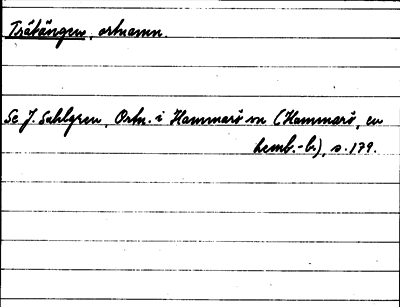 Tråtången, ortnamn.
Se J. Sahlgren, Ortn. i Hammarö sn (Hammarö, en
hemb.-b.), s. 179.